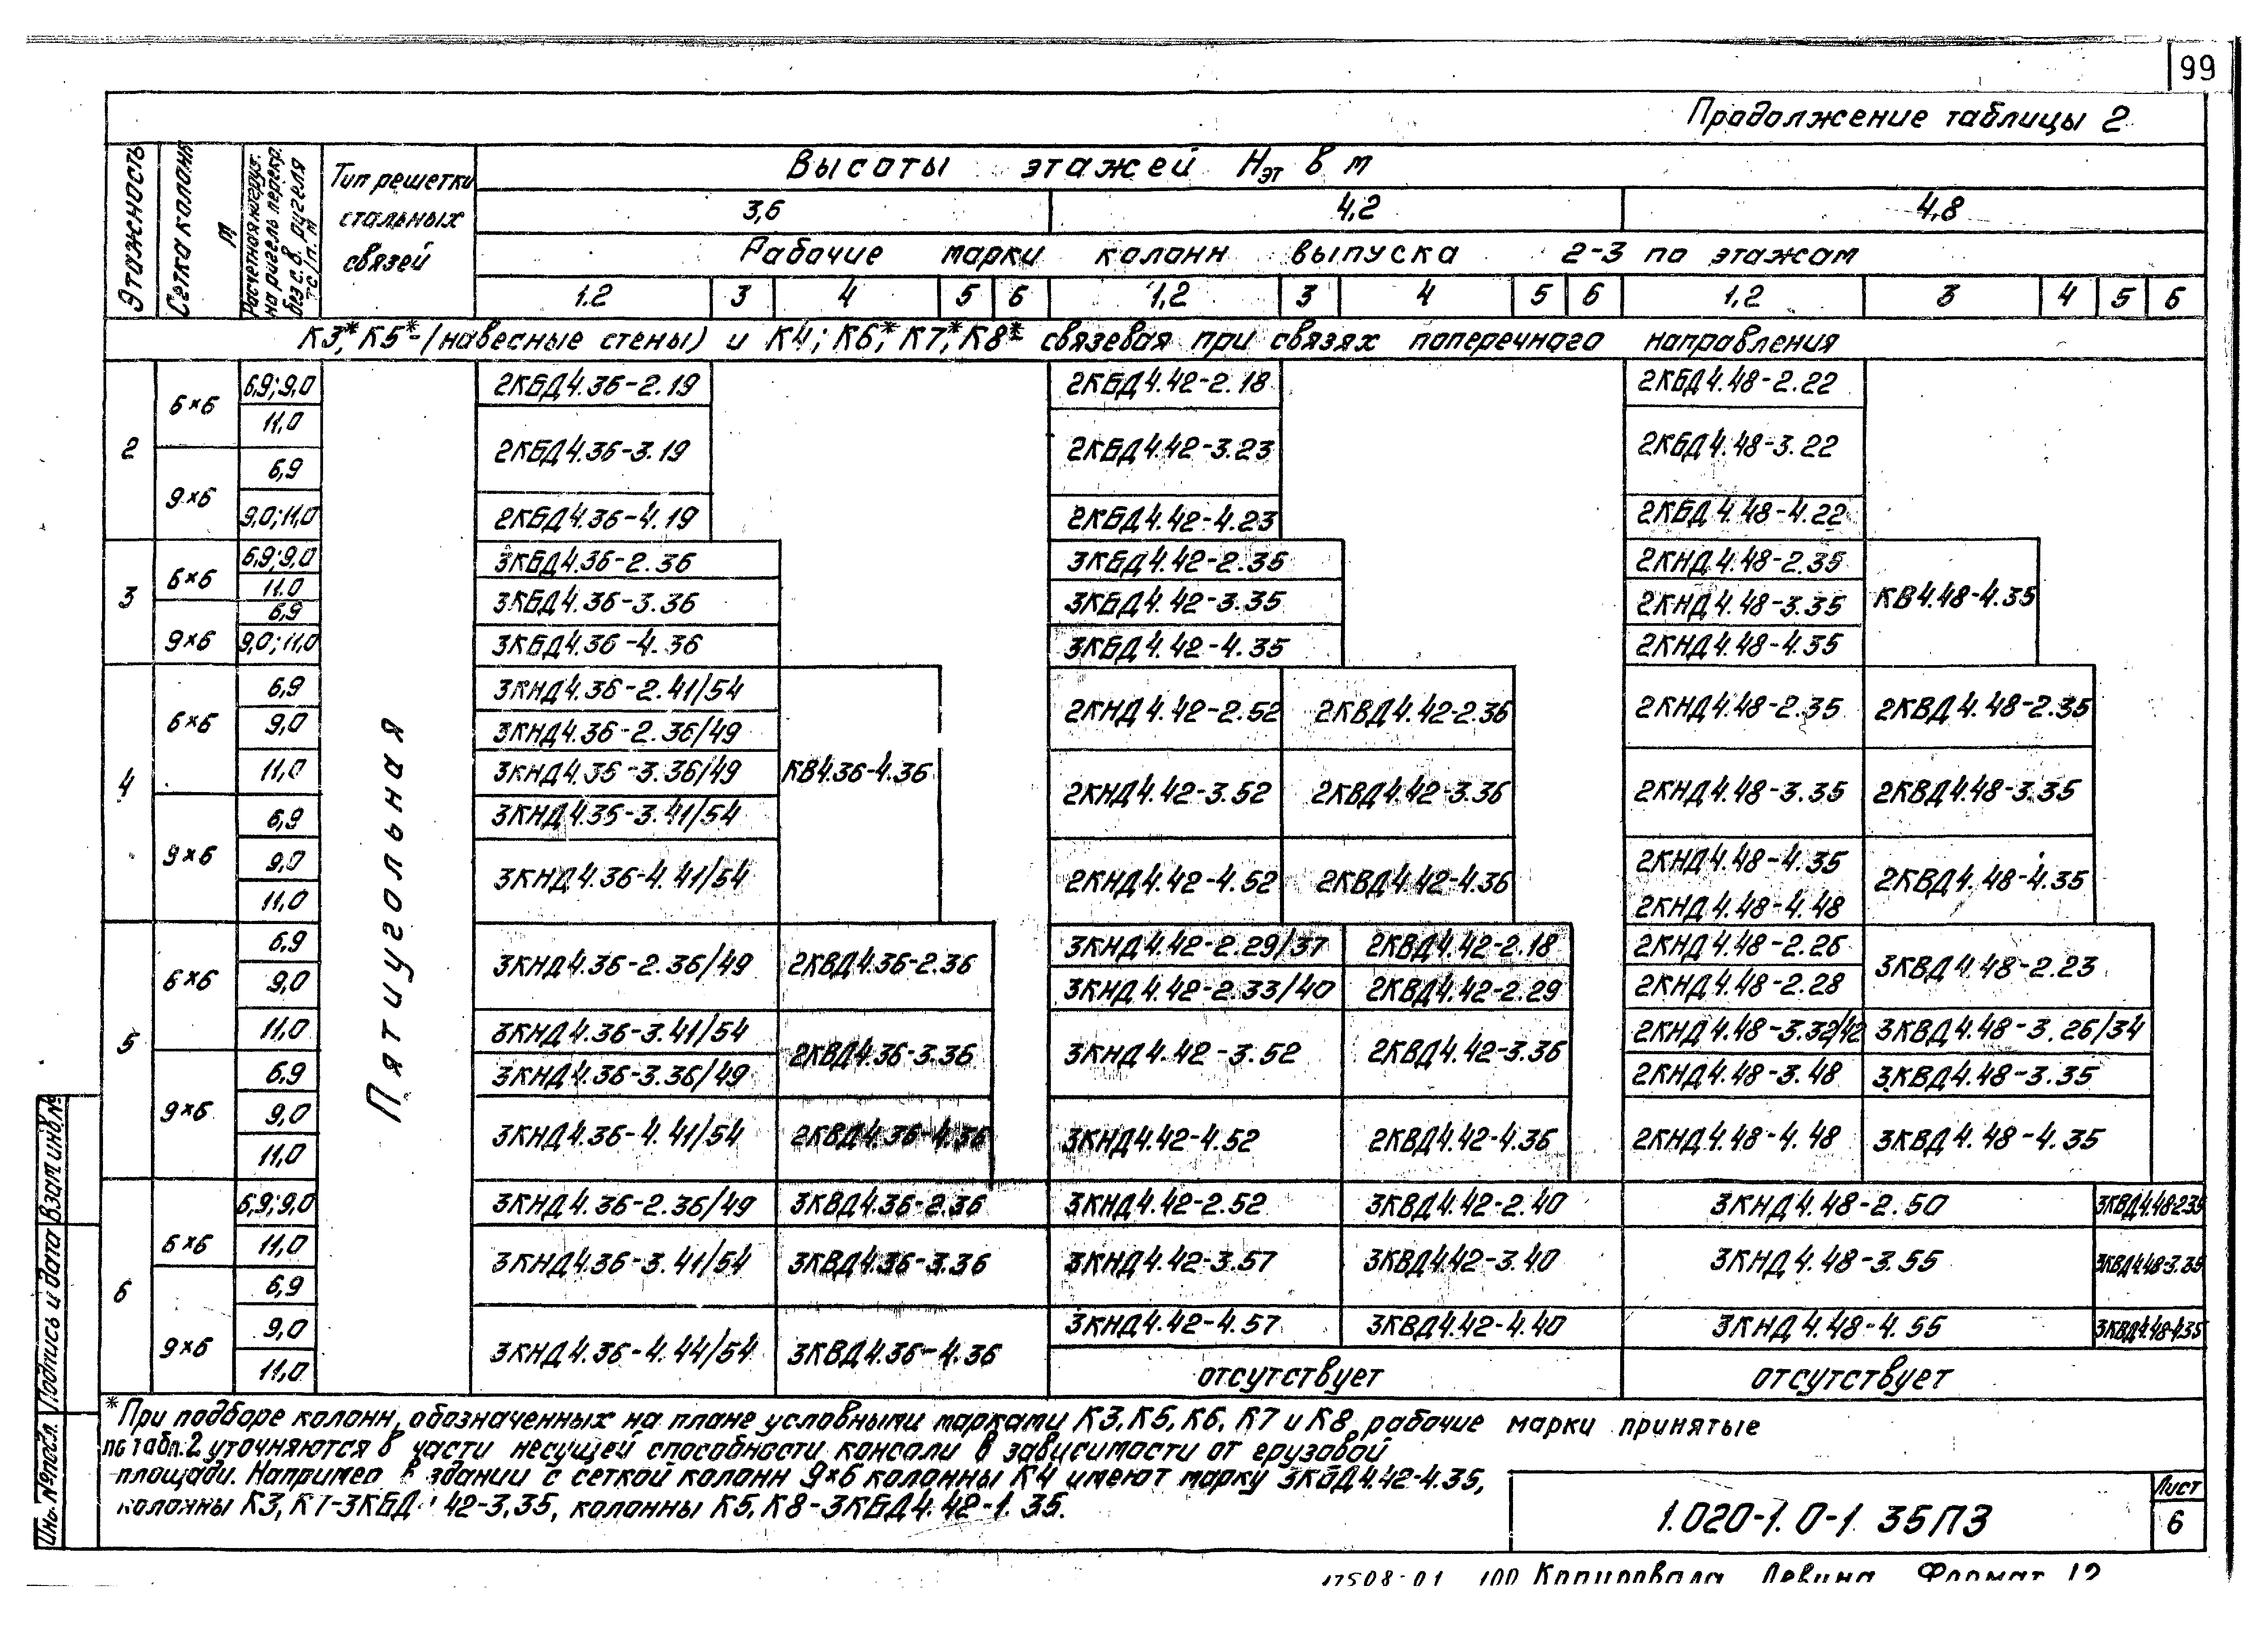 99
Продолжение таблицы 2
Этажность
Сетка колонн м
Расчетная нагруз. на ригель перекр. без с.в. ригеля тс/п.м
Тип решетки стальных связей
Высоты этажей Нэт в м
3,6 4,2 4,8
Рабочие марки колонн выпуска 2-3 по этажам
1.2 3 4 5 6 1,2 3 4 5 6 1,2 3 4 5 6
К3*, К5*-(навесные стены) и К4; К6*, К7*, К8* связевая при связях поперечного направления
Пятиугольная
2 6×6 6,9; 9,0 2КБД4.36-2.19 2КБД4.42-2.18 2КБД4.48-2.22
11,0 2КБД4.36-3.19 2КБД4.42-3.23 2КБД4.48-3.22
9×6 6,9
9,0; 11,0 2КБД4.36-4.19 2КБД4.42-4.23 2КБД4.48-4.22
3 6×6 6,9; 9,0 3КБД4.36-2.36 3КБД4.42-2.35 2КНД4.48-2.35 КВ4.48-4.35
11.0 3КБД4.36-3.36 3КБД4.42-3.35 2КНД4.48-3.35
6,9
9×6 9,0; 11,0 3КБД4.36-4.36 3КБД4.42-4.35 2КНД4.48-4.35
4 6×6 6,9 3КНД4.36-2.41/54 КВ4.36-4.36 2КНД4.42-2.52 2КВД4.42-2.36 2КНД4.48-2.35 2КВД4.48-2.35
9,0 3КНД4.36-2.36/49
11,0 3КНД4.36-3.36/49 2КНД4.42-3.52 2КВД4.42-3.36 2КНД4.48-3.35 2КВД4.48-3.35
9×6 6,9 3КНД4.36-3.41/54
9,0 3КНД4.36-4.41/54 2КНД4.42-4.52 2КВД4.42-4.36 2КНД4.48-4.35 2КВД4.48-4.35
11,0 2КНД4.48-4.48
5 6×6 6,9 3КНД4.36-2.36/49 2КВД4.36-2.36 3КНД4.42-2.29/37 2КВД4.42-2.18 2КНД4.48-2.26 3КВД4.48-2.23
9,0 3КНД4.42-2.33/40 2КВД4.42-2.29 2КНД4.48-2.28
11,0 3КНД4.36-3.41/54 2КВД4.36-3.36 3КНД4.42-3.52 2КВД4.42-3.36 2КНД4.48-3.32/42 3КВД4.48-3.26/34
9×6 6,9 3КНД4.36-3.36/49 2КНД4.48-3.48 3КВД4.48-3.35
9,0 3КНД4.36-4.41/54 2КВД4.36-4.36 3КНД4.42-4.52 2КВД4.42-4.36 2КНД4.48-4.48 3КВД4.48-4.35
11,0
6 6×6 6,9; 9,0 3КНД4.36-2.36/49 3КВД4.36-2.36 3КНД4.42-2.52 3КВД4.42-2.40 3КНД4.48-2.50 3КВД4.48-2.35
11,0 3КНД4.36-3.41/54 3КВД4.36-3.36 3КНД4.42-3.57 3КВД4.42-3.40 3КНД4.48-3.55 3КВД4.48-3.35
9×6 6,9
9,0 3КНД4.36-4.44/54 3КВД4.36-4.36 3КНД4.42-4.57 3КВД4.42-4.40 3КНД4.48-4.55 3КВД4.48-4.35
11,0 отсутствует отсутствует
*При подборе колонн, обозначенных на плане условными марками К3, К5, К6, К7 и К8 рабочие марки принятые
по табл.2 уточняются в части несущей способности консоли в зависимости от грузовой
площади. Например в здании с сеткой колонн 9×6 колонны К4 имеют марку 3КБД4.42-4.35,
колонны К3, К7-3КБД 42-3.35, колонны К5, К8-3КБД4.42-1.35.
1.020-1.0-1 35ПЗ
Лист
6
Инв.№подл. Подпись и дата Взам инв.№
17508-01 100 Копировала Левина Формат 12